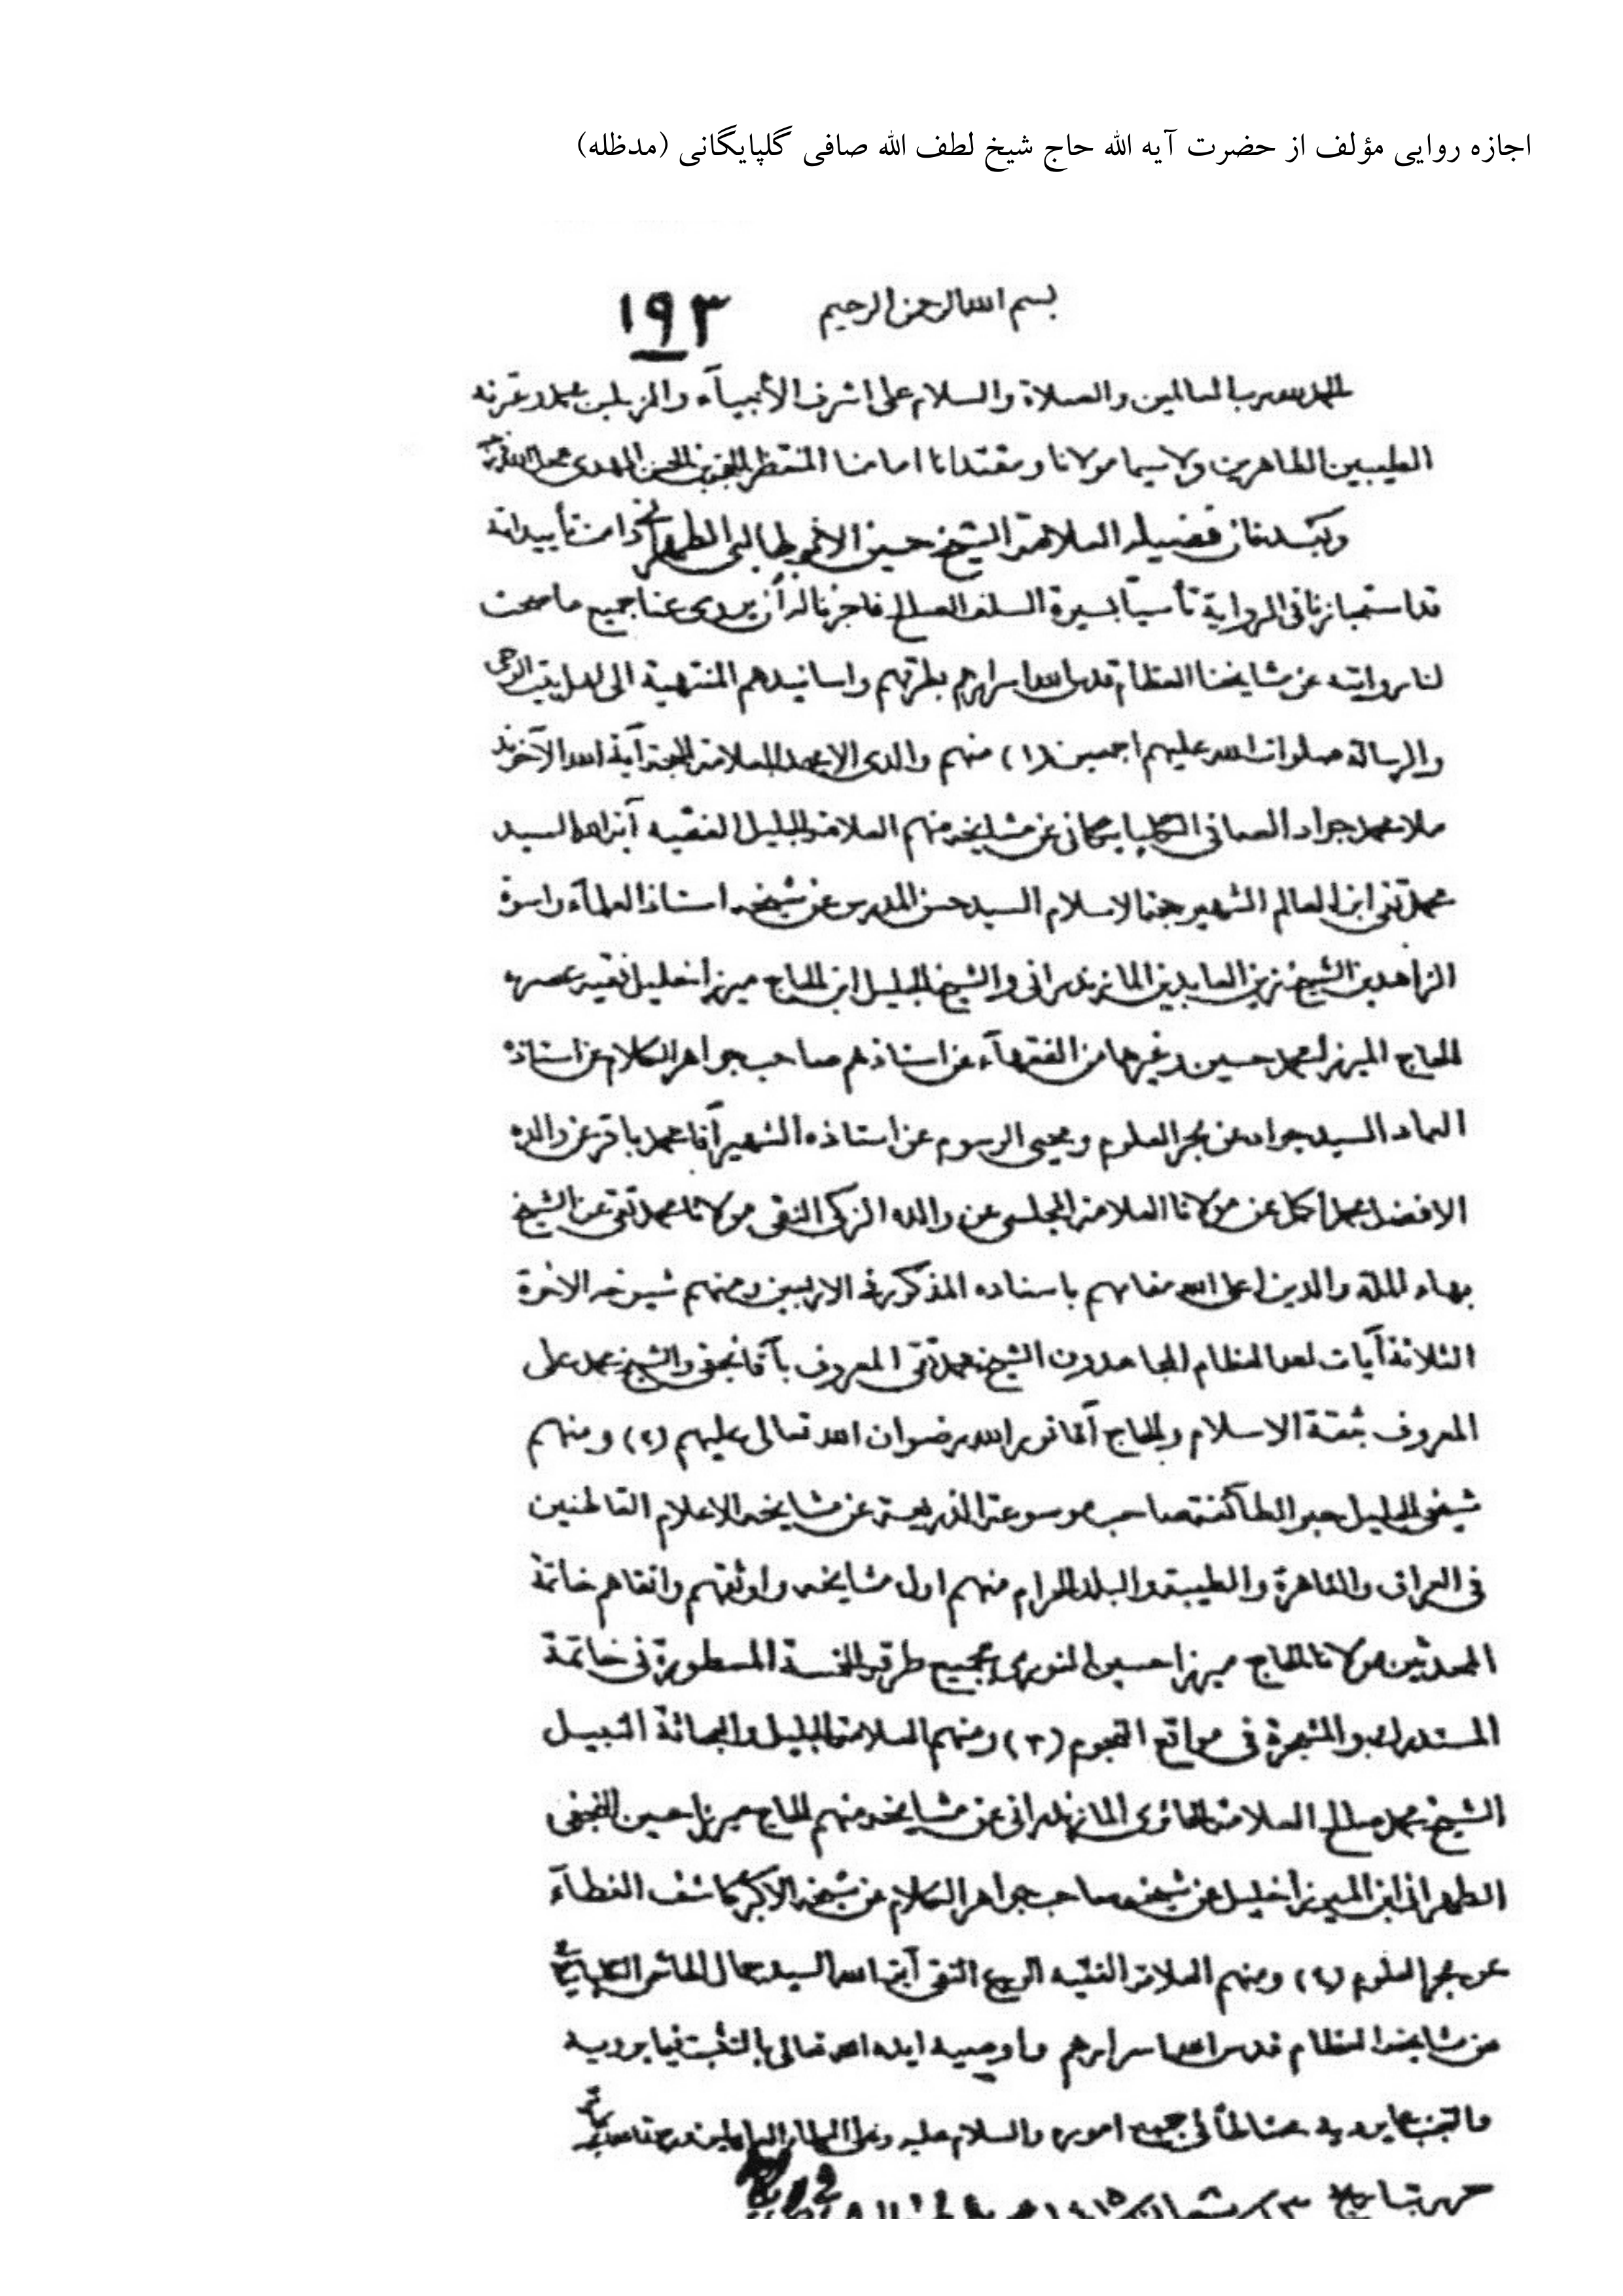 اجازه روایی مؤلف از حضرت آیه الله حاج شیخ لطف الله صافی گلپایگانی (مدظله)
بسم الله الرحمن الرحیم ۱۹۳
الحمد لله رب العالمین والصلاة والسلام علی اشرف الأنبیآء والمرسلین محمد وعترته
الطیبین الطاهرین ولا سیما مولانا ومقتدانا امامنا المنتظر الحجة بن الحسن المهدی
وبعد فان فضیلة العلامة الشیخ حسین دامت تأییداته
قد استجازنا فی الروایة تأسیاً بسیرة السلف الصالح فاجزنا له أن یروی عنا جمیع ما صحت
لنا روایته عن مشایخنا العظام قدس الله اسرارهم بطرقهم واسانیدهم المنتهیة الی اهل بیت الوحی
والرسالة صلوات الله علیهم اجمعین (۱) منهم والدی الامجد العلامة الحجة آیة الله الآخوند
ملا محمد جواد الصافی الگلپایگانی عن مشایخه منهم العلامة الجلیل الفقیه آیة الله السید
محمد تقی ابن العالم الشهیر حجة الاسلام السید حسن المدرس عن شیخه استاذ العلمآء واسوة
الزاهدین الشیخ زین العابدین المازندرانی والشیخ الجلیل ابن الحاج میرزا خلیل فقیه عصره
الحاج المیرزا محمد حسین وغیرها من الفقهآء عن استاذهم صاحب جواهر الکلام عن استاذه
العماد السید جواد عن بحر العلوم ومحیی الرسوم عن استاذه الشهیر آقا محمد باقر عن والده
الافضل محمد اکمل عن مولانا العلامة المجلسی عن والده الزکی التقی مولانا محمد تقی عن الشیخ
بهاء الملة والدین اعلی الله مقامهم باسناده المذکور فی الاربعین ومنهم شیوخه الاخوة
الثلاثة آیات الله العظام المجاهدون الشیخ محمد تقی المعروف بآقا نجفی والشیخ محمد علی
المعروف بثقة الاسلام والحاج آقا نور الله رضوان الله تعالی علیهم (۲) ومنهم
شیخی الجلیل حبر الطائفة صاحب موسوعة الذریعة عن مشایخه الاعلام القاطنین
فی العراق والقاهرة والطیبة والبلد الحرام منهم اول مشایخه واوثقهم واتقاهم خاتمة
المحدثین مولانا الحاج میرزا حسین النوری بجمیع طرقه الخمسة المسطورة فی خاتمة
المستدرک والمشجرة فی مواقع النجوم (۳) ومنهم العلامة الجلیل والبحاثة النبیل
الشیخ محمد صالح العلامة الحائری المازندرانی عن مشایخه منهم الحاج میرزا حسین النجفی
الطهرانی ابن المیرزا خلیل عن شیخه صاحب جواهر الکلام عن شیخه الاکبر کاشف الغطآء
عن بحر العلوم (۴) ومنهم العلامة الفقیه الورع التقی آیة الله السید جمال الهاشمی الگلپایگانی
عن مشایخه العظام قدس الله اسرارهم واوصیه ایده الله تعالی بالتثبت فیما یرویه
جمیع اموره والسلام علیه وعلی